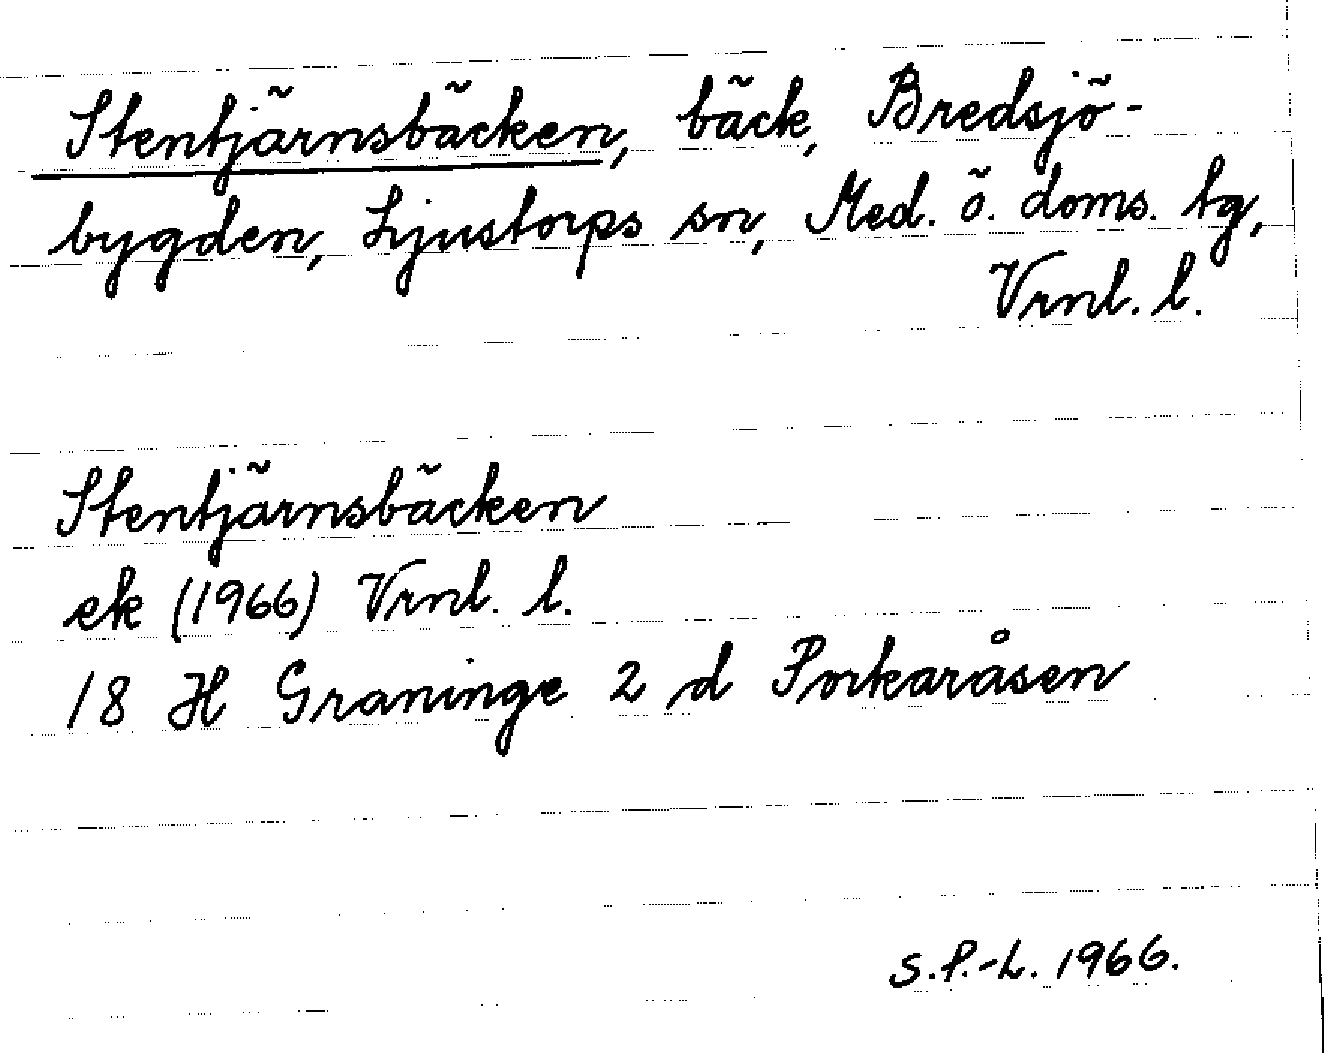 Stentjärnsbäcken, bäck, Bredsjö-
bygden, Ljustorps sn, Med. ö. doms. tg,
Vrnl. l.
Stentjärnsbäcken
ek (1966) Vrnl. l.
18 H Graninge 2 d Porkaråsen
S.P.-L. 1966.